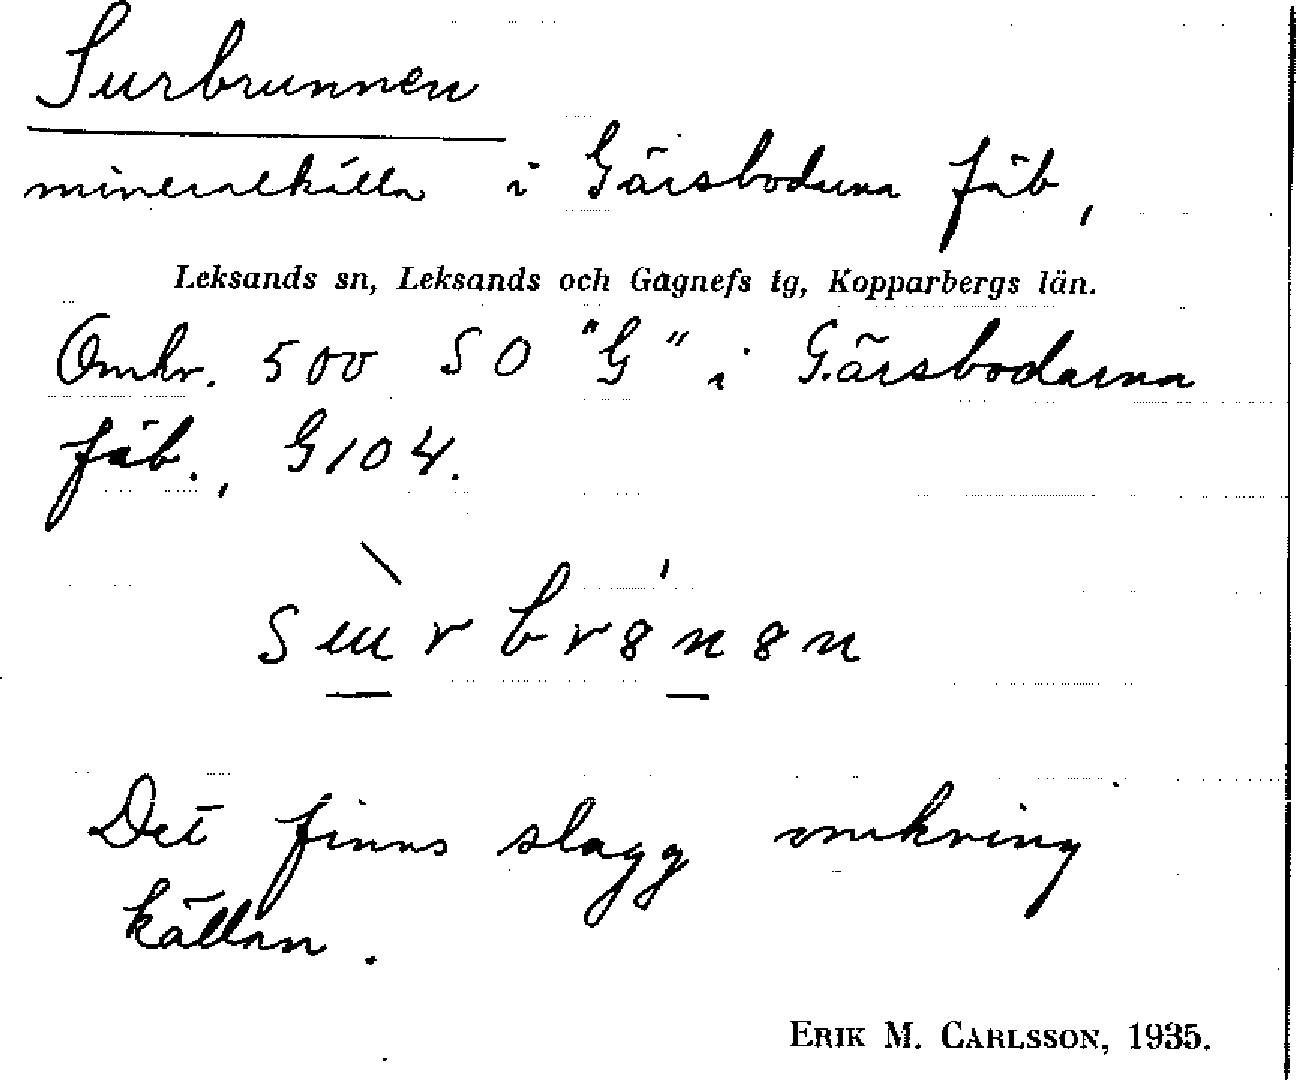 Surbrunnen
mineralkälla i Gärsbodarna fäb,
Leksands sn, Leksands och Gagnefs tg, Kopparbergs län.
Omkr. 500 SO "G" i Gärsbodarna
fäb., G104.
Det finns slagg omkring
källan.
ERIK M. CARLSSON, 1935.